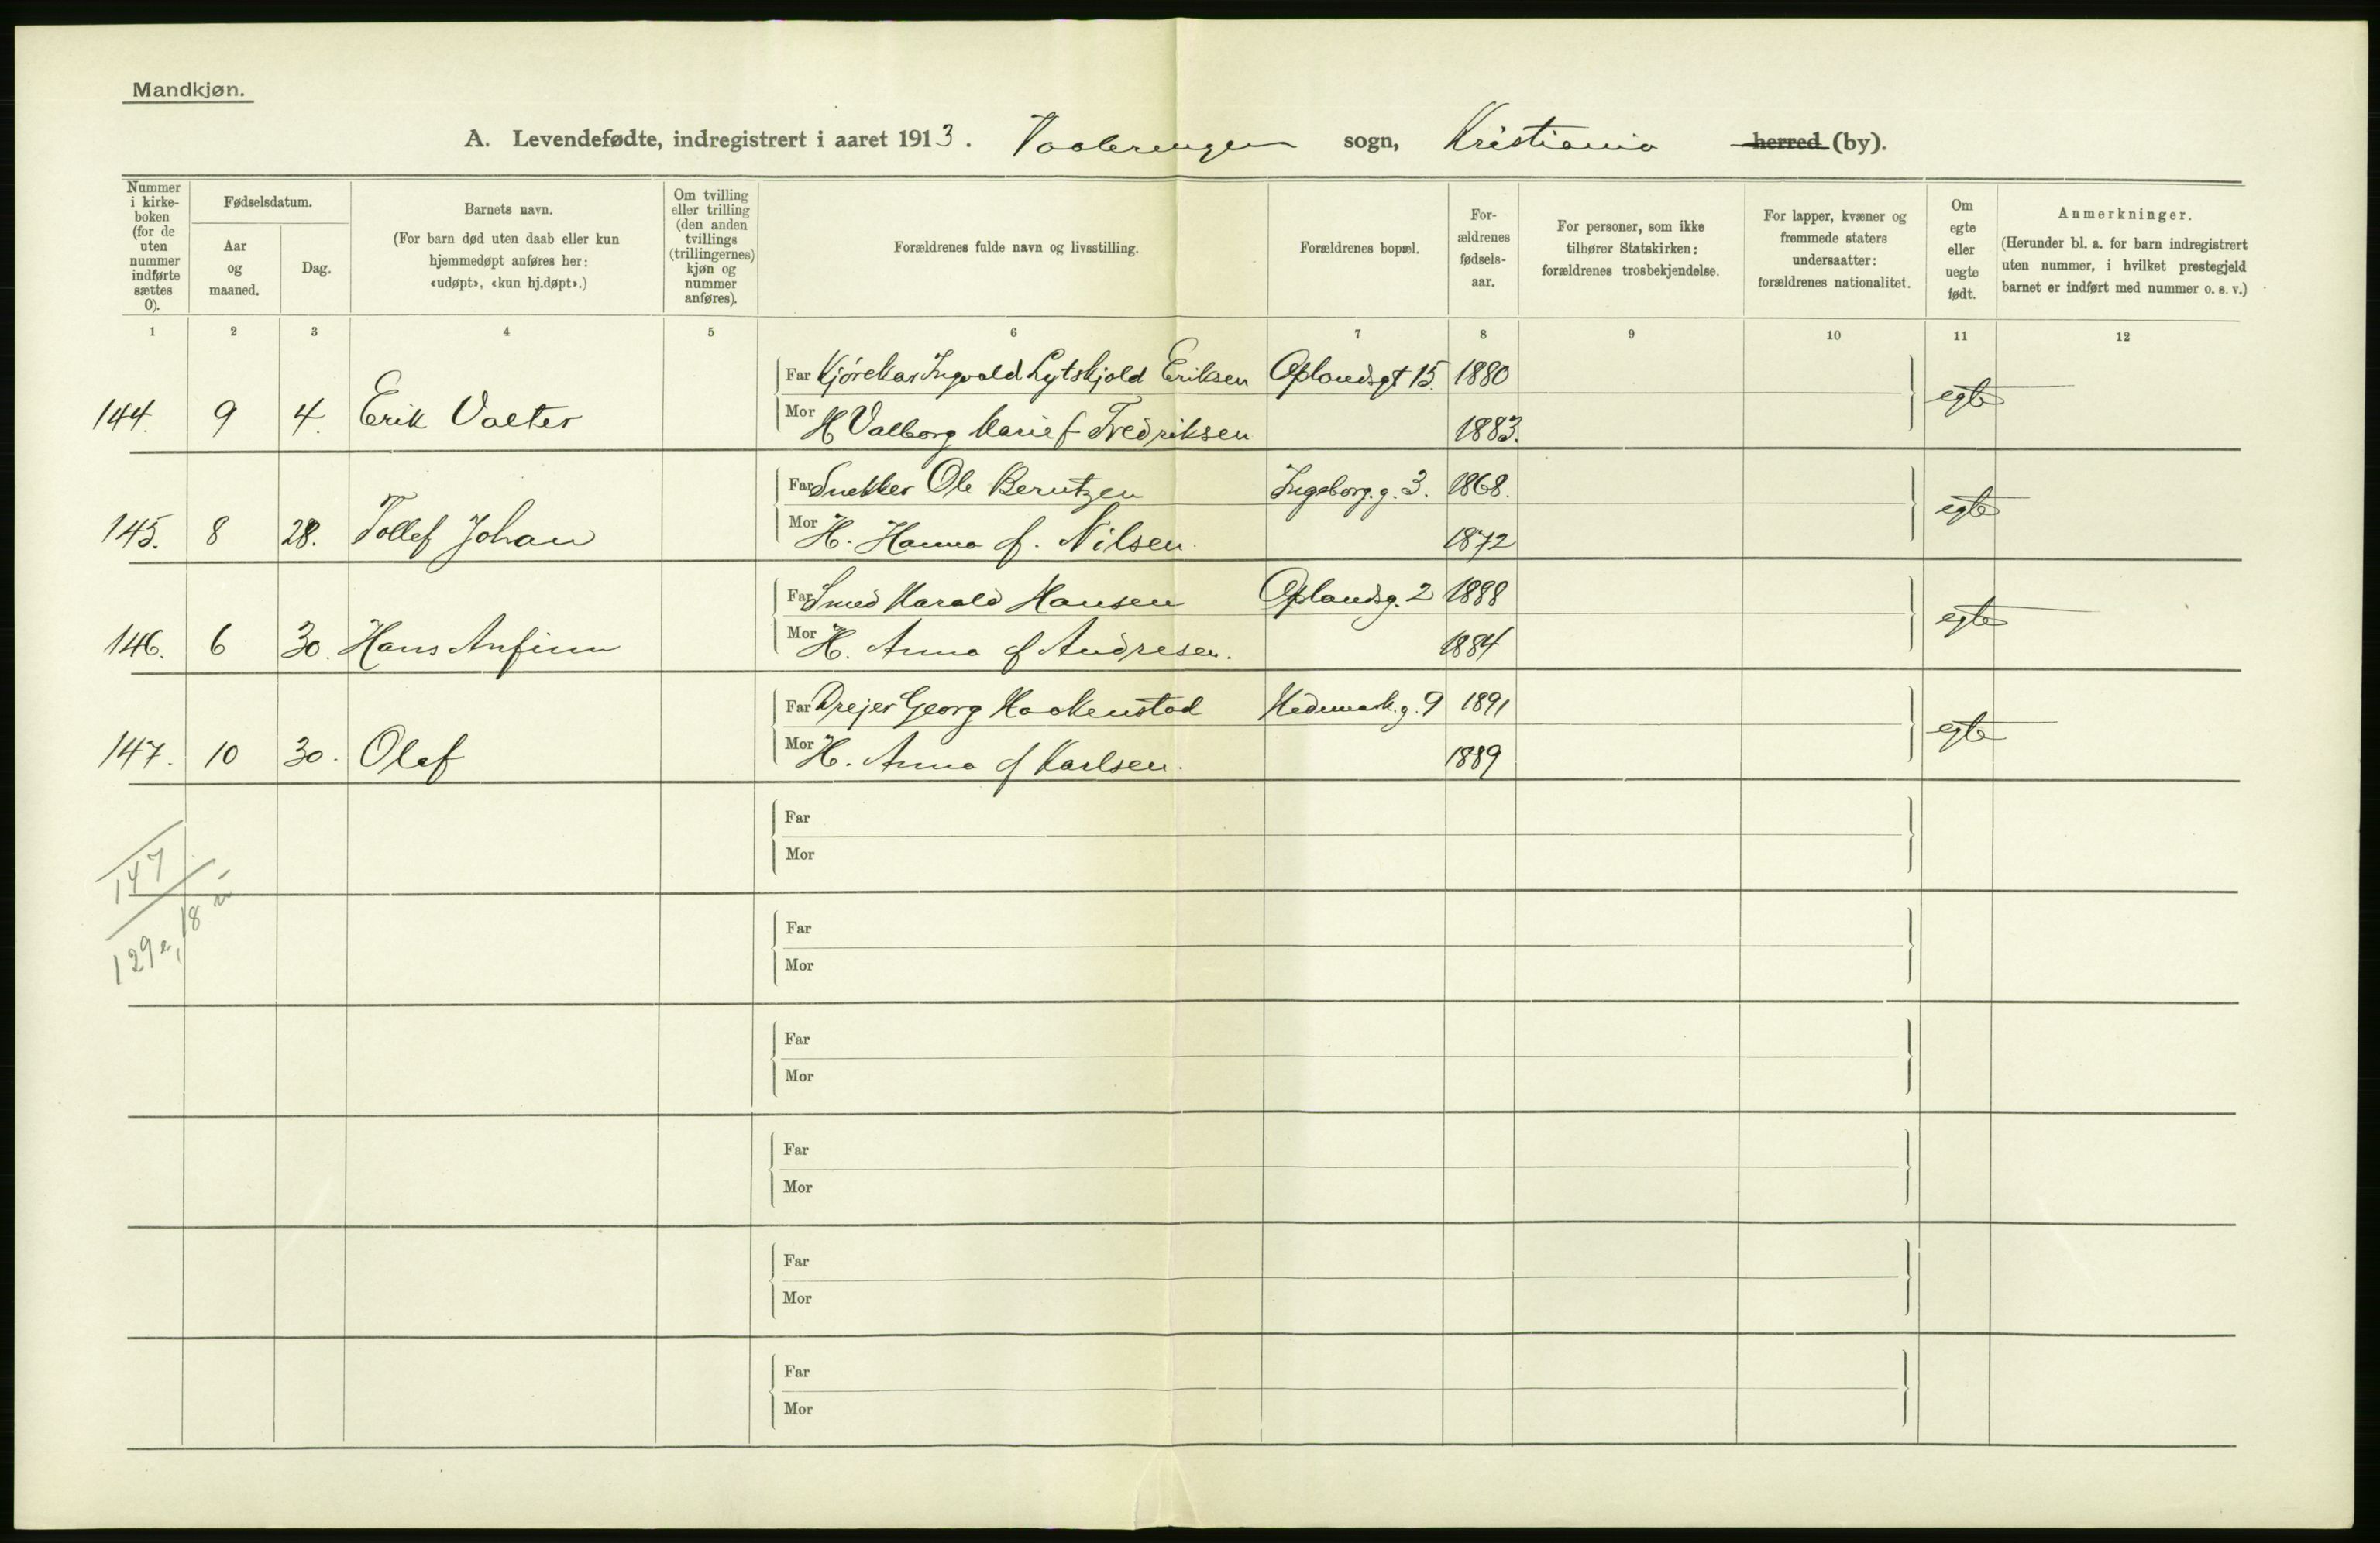 Mandkjøn.
A. Levendefødte, indregistrert i aaret 1913. Vaalerengen sogn, Kristiania herred (by).
Nummer i kirke-boken (for de uten nummer indførte sættes 0).
Fødselsdatum.
Aar og maaned.
Dag.
Barnets navn.
(For barn død uten daab eller kun hjemmedøpt anføres her: «udøpt», «kun hj.døpt».)
Om tvilling eller trilling (den anden tvillings (trillingernes) kjøn og nummer anføres).
Forældrenes fulde navn og livsstilling.
Forældrenes bopæl.
For-ældrenes fødsels-aar.
For personer, som ikke tilhører Statskirken: forældrenes trosbekjendelse.
For lapper, kvæner og fremmede staters undersaatter: forældrenes nationalitet.
Om egte eller uegte født.
Anmerkninger.
(Herunder bl. a. for barn indregistrert uten nummer, i hvilket prestegjeld barnet er indført med nummer o. s. v.)
1 2 3 4 5 6 7 8 9 10 11 12
Far Kjørekar Ingvald Lytskjold Eriksen Oplandsgt 15. 1880
144. 9 4. Erik Valter egte
Mor H Valborg Marie f Fredriksen 1883.
Far Snekker Ole Berntzen Ingeborg.g. 3. 1868.
145. 8 28. Tollef Johan egte
Mor H. Hanna f. Nilsen. 1872
Far Smed Harald Hansen Oplandsg. 2 1888
146. 6 30. Hans Anfinn egte
Mor H. Anna f Andresen. 1884
Far Drejer Georg Hackenstad Hedemark.g. 9 1891
147. 10 30. Olaf egte
Mor H. Anna f Karlsen. 1889
Far
Mor
147
129 e, 18 u
Far
Mor
Far
Mor
Far
Mor
Far
Mor
Far
Mor